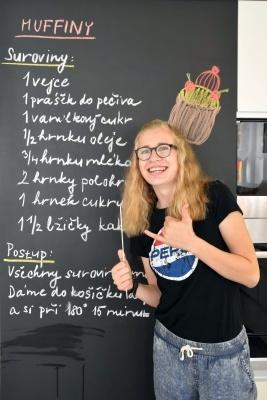 MUFFINY
Suroviny:
1 vejce
1 prášek do pečiva
1 vanilkový cukr
1/2 hrnku oleje
3/4 hrnku mléka
2 hrnky polohr
1 hrnek cukru
1 1/2 lžičky kak
Postup:
Všechny surovin
Dáme do košíčků
a si při 180° 15 minut